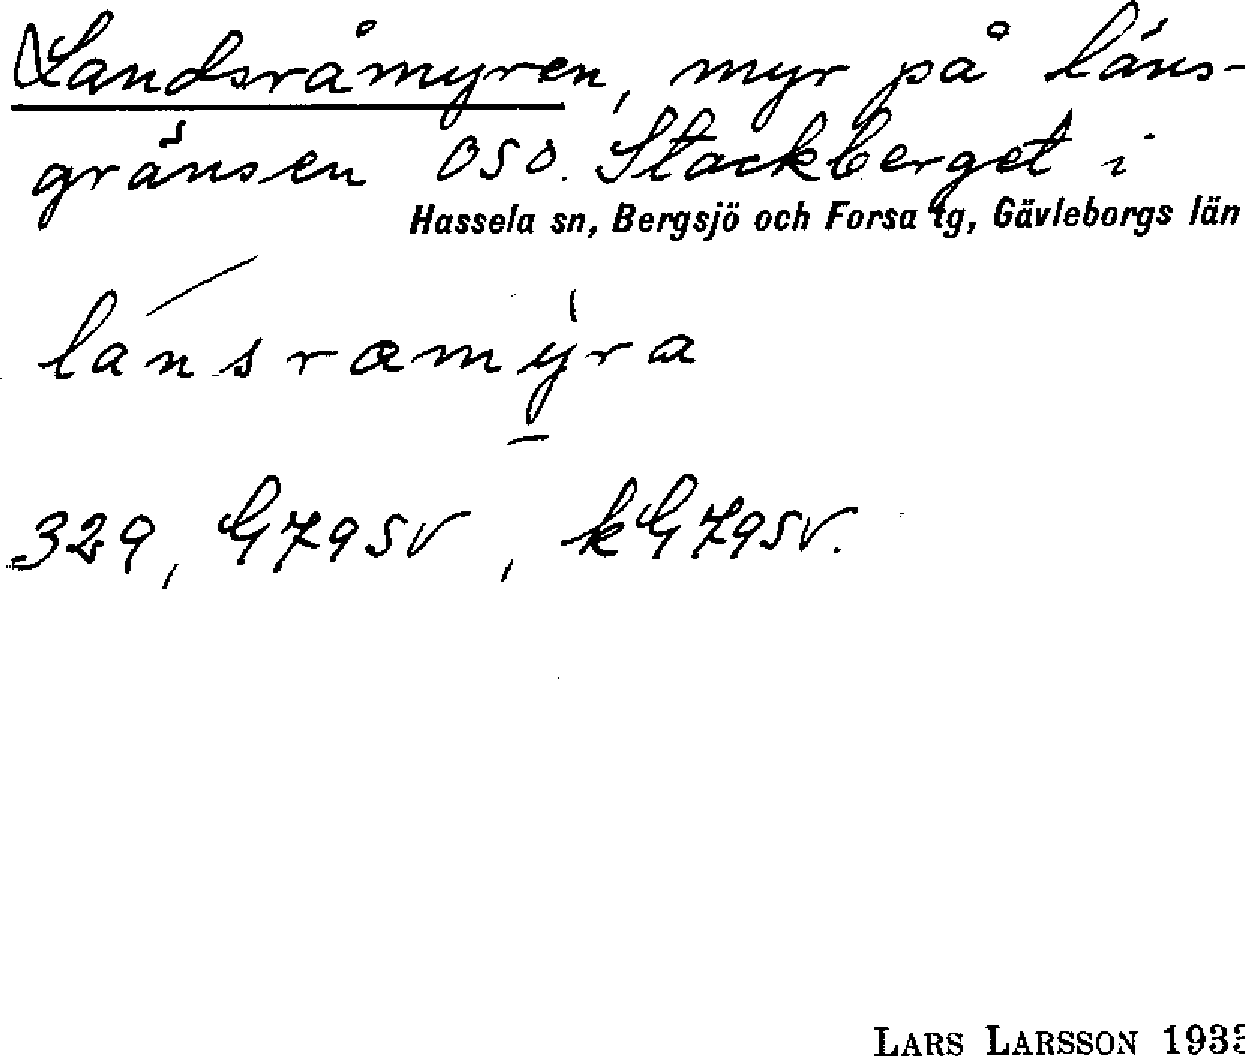 Landsråmyren, myr på läns-
gränsen OSO. Stackberget i
Hassela sn, Bergsjö och Forsa tg, Gävleborgs län
lánsramy̠̍ra
329, G79SV, kG79SV.
LARS LARSSON 1935